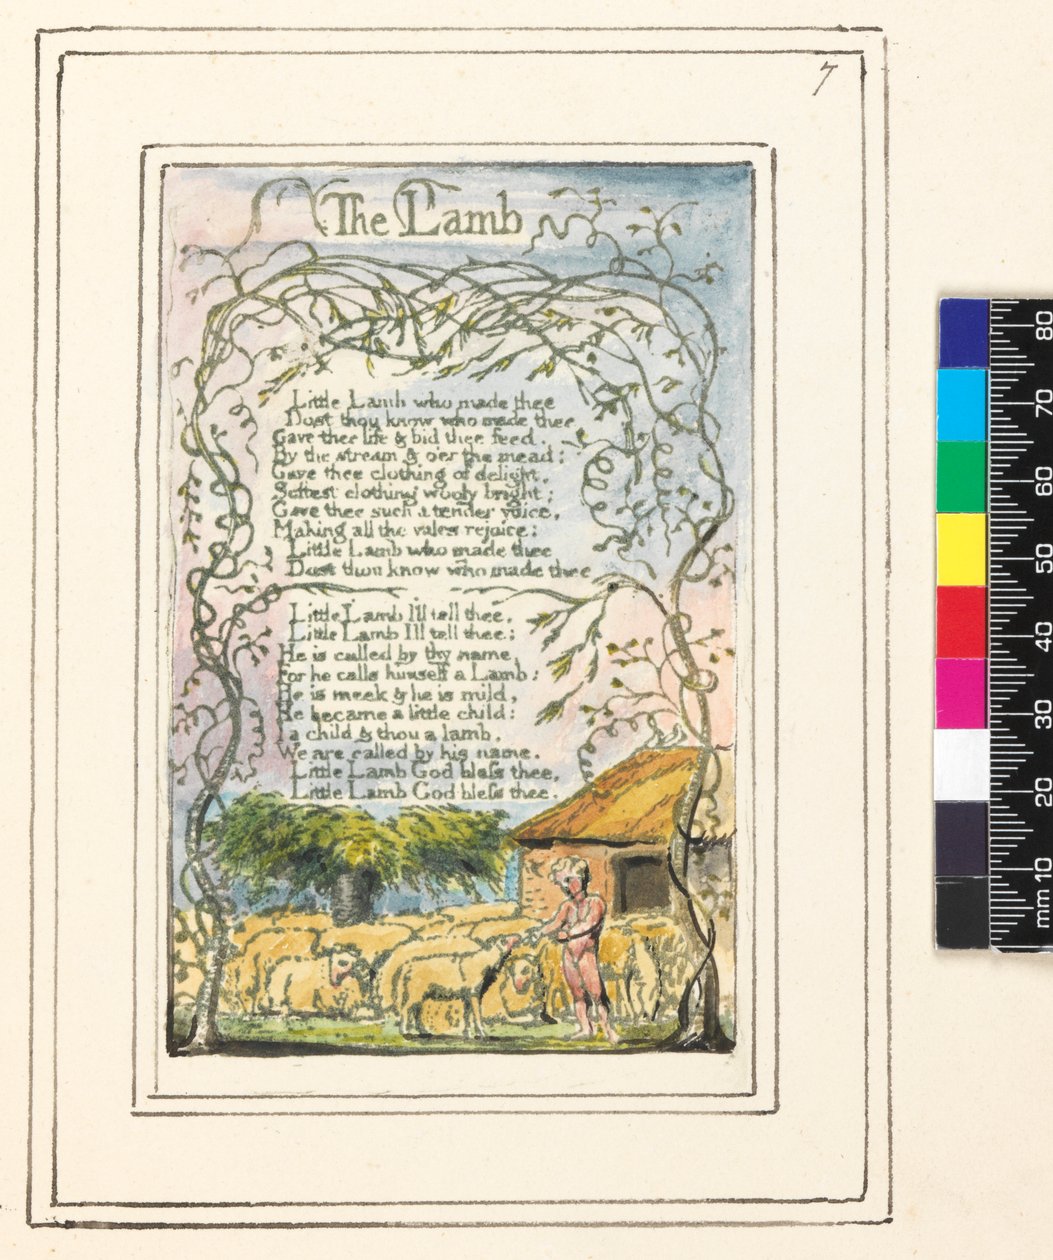 7
The Lamb
Little Lamb who made thee
Dost thou know who made thee
Gave thee life & bid thee feed.
By the stream & o'er the mead;
Gave thee clothing of delight,
Softest clothing wooly bright;
Gave thee such a tender voice,
Making all the vales rejoice:
Little Lamb who made thee
Dost thou know who made thee
Little Lamb Ill tell thee,
Little Lamb Ill tell thee;
He is called by thy name,
For he calls himself a Lamb:
He is meek & he is mild,
He became a little child:
I a child & thou a lamb,
We are called by his name.
Little Lamb God bleſs thee,
Little Lamb God bleſs thee.
80
70
60
50
40
30
20
mm 10